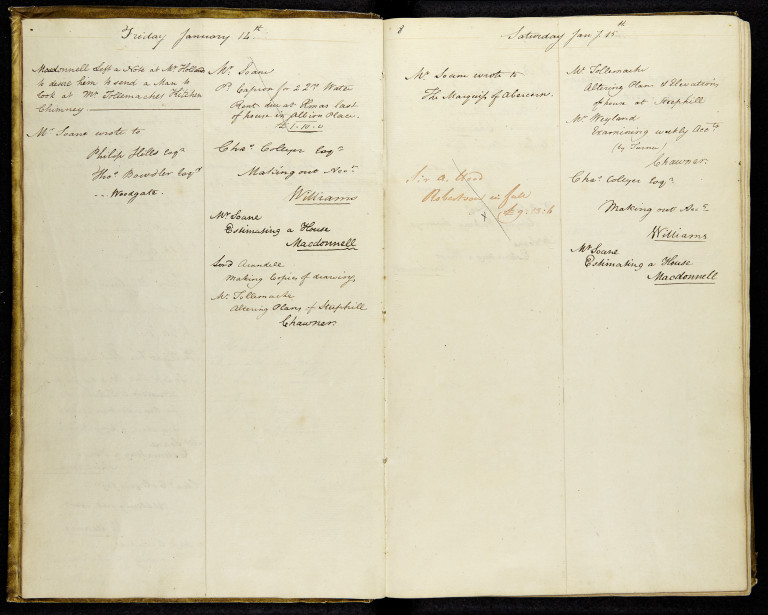 Friday January 14th
Macdonnell Left a Note at Mr Holland
to desire him to send a Man to
look at Mr Tollemaches Kitchen
Chimney.
Mr Soane wrote to
Philip Hills Esqr
Thos Bowdler Esqr
-- Woodgate.
Mr Soane
Pd Capron for 2 Qrs Water
Rent due at Xmas last
of house in Albion Place.
£1-10-0
Chas Collyer Esqr
Making out Acct
Williams
Mr Soane
Estimating a House
Macdonnell
Lord Arundell
Making Copies of drawings
Mr Tollemache
Altering Plans of Steephill
Chawner.
8
Saturday Jany 15th
Mr Soane wrote to
The Marquiss of Abercorn.
Robertson in full
Mr Tollemache
Altering Plans & Elevations
of house at Steephill
Mr Weyland
Examining weekly Accts
(by Turner)
Chawner.
Chas Collyer Esqr
Making out Acct
Williams
Mr Soane
Estimating a House
Macdonnell